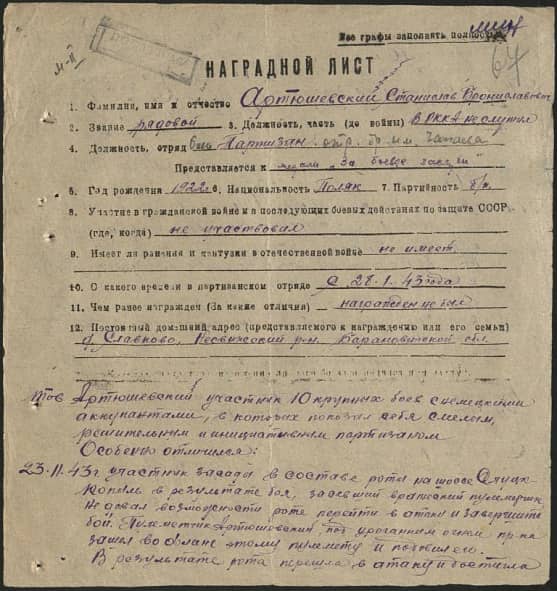 Все графы заполнять полностью
М-П
64
НАГРАДНОЙ ЛИСТ
1. Фамилия, имя и отчество Артюшевский Станислав Брониславович
2. Звание рядовой 3. Должность, часть (до войны) В РККА не служил
4. Должность, отряд Партизан отр. бр. им. Чапаева
Представляется к медали "За боевые заслуги"
5. Год рождения 1922 6. Национальность Поляк 7. Партийность б/п.
8. Участие в гражданской войне и последующих боевых действиях по защите СССР
(где, когда) не участвовал
9. Имеет ли ранения и контузии в отечественной войне не имеет.
10. С какого времени в партизанском отряде с 28.1.43 года
11. Чем ранее награжден (За какие отличия) награжден не был
12. Постоянный домашний адрес (представляемого к награждению или его семьи)
д. Славково, Несвижский р-н. Барановичской обл.
тов Артюшевский участник 10 крупных боев с немецкими
аккупантами, в которых показал себя смелым,
решительным и инициативным партизаном
Особенно отличился:
23.11.43г участник засады в составе роты на шоссе Слуцк-
Копыль в результате боя, засевший вражеский пулеметчик
не давал возможности роте перейти в атаку и завершить
бой. Пулеметчик Артюшевский, под ураганным огнем пр-ка
зашел во фланг этому пулемету и подавил его.
В результате рота перешла в атаку и достигла